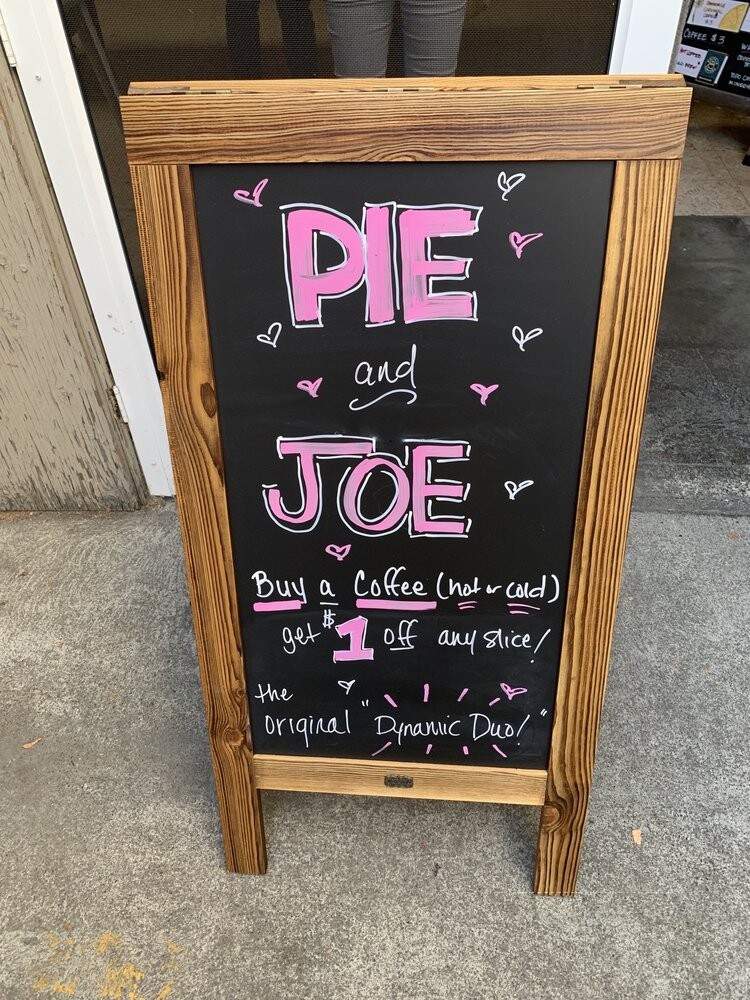 PIE
and
JOE
Buy a Coffee (hot or cold)
get $1 off any slice!
the
original "Dynamic Duo!"
COFFEE $3